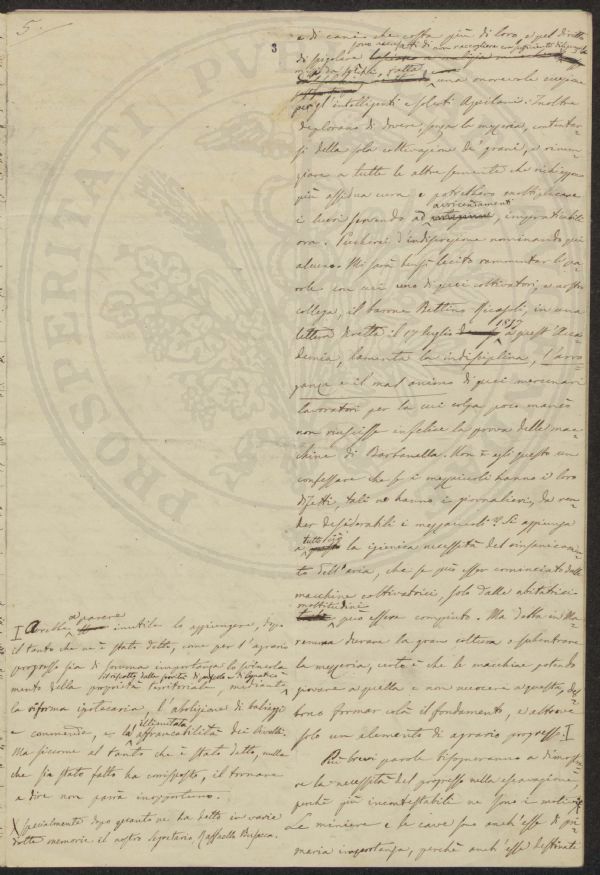 5.
3
e di cani che costa più di loro, e pel diritto
di spigolare
sono accusati di non raccogliere
una onorevole eccezione
per gl'intelligenti e solerti Agellani. Inoltre
deplorano di dovere, senza la mezzeria, contentar-
si della sola coltivazione de' grani, e rinun-
ziare a tutte le altre semente che richieggono
più assidua cura e potrebbero moltiplicare
avvicendamenti
i lucri secondo ad, impraticabili
ora. Peccherei d'indiscrezione nominando qui
alcuno. Mi sarà bensì lecito rammentar le pa-
role con cui uno di quei coltivatori, e nostro
collega, il barone Bettino Ricasoli, in una
1857
lettera diretta il 17 luglio a quest'Acca-
demia, lamenta la indisciplina, l'arro-
ganza e il mal animo di quei mercenari
lavoratori per la cui colpa poco mancò
non riuscisse infelice la prova delle mac-
chine di Barbanella. Non è egli questo un
confessare che se i mezzaioli hanno i loro
difetti, tali ne hanno i giornalieri, da ren-
der desiderabili i mezzaioli? Si aggiunga
tutto ciò
a la igienica necessità del risanicamen-
to dell'aria, che se può esser cominciato dalle
macchine coltivatrici, solo dalle abitatrici
moltitudini
può essere compiuto. Ma debba in Ma-
remma durare la gran coltura o subentrare
la mezzeria, certo è che le macchine potendo
giovare a quella e non nuocere a questa, deb-
bono formar colà il fondamento, e altrove
solo un elemento di agrario progresso.
Più brevi parole bisogneranno a dimostra-
re la necessità del progresso nella escavazione
perchè più incontestabili ne sono i motivi.
Le miniere e le cave son anch'esse di pri-
maria importanza, perchè anch'esse destinati
a parere
Avrebbe inutile lo aggiungere, dopo
il tanto che n'è stato detto, come per l'agrario
progresso sia di somma importanza lo svincola-
mento della proprietà territoriale, mediante
la riforma ipotecaria, l'abolizione di balzelli
illimitata
e commende, e la affrancabilità dei livelli.
Ma siccome al tanto che è stato detto, nulla
che sia stato fatto ha corrisposto, il tornare
a dire non parrà inopportuno.
X specialmente dopo quanto ne ha detto in varie
dotte memorie il nostro Segretario Raffaello Busacca.
PROSPERITATI PUBLICAE